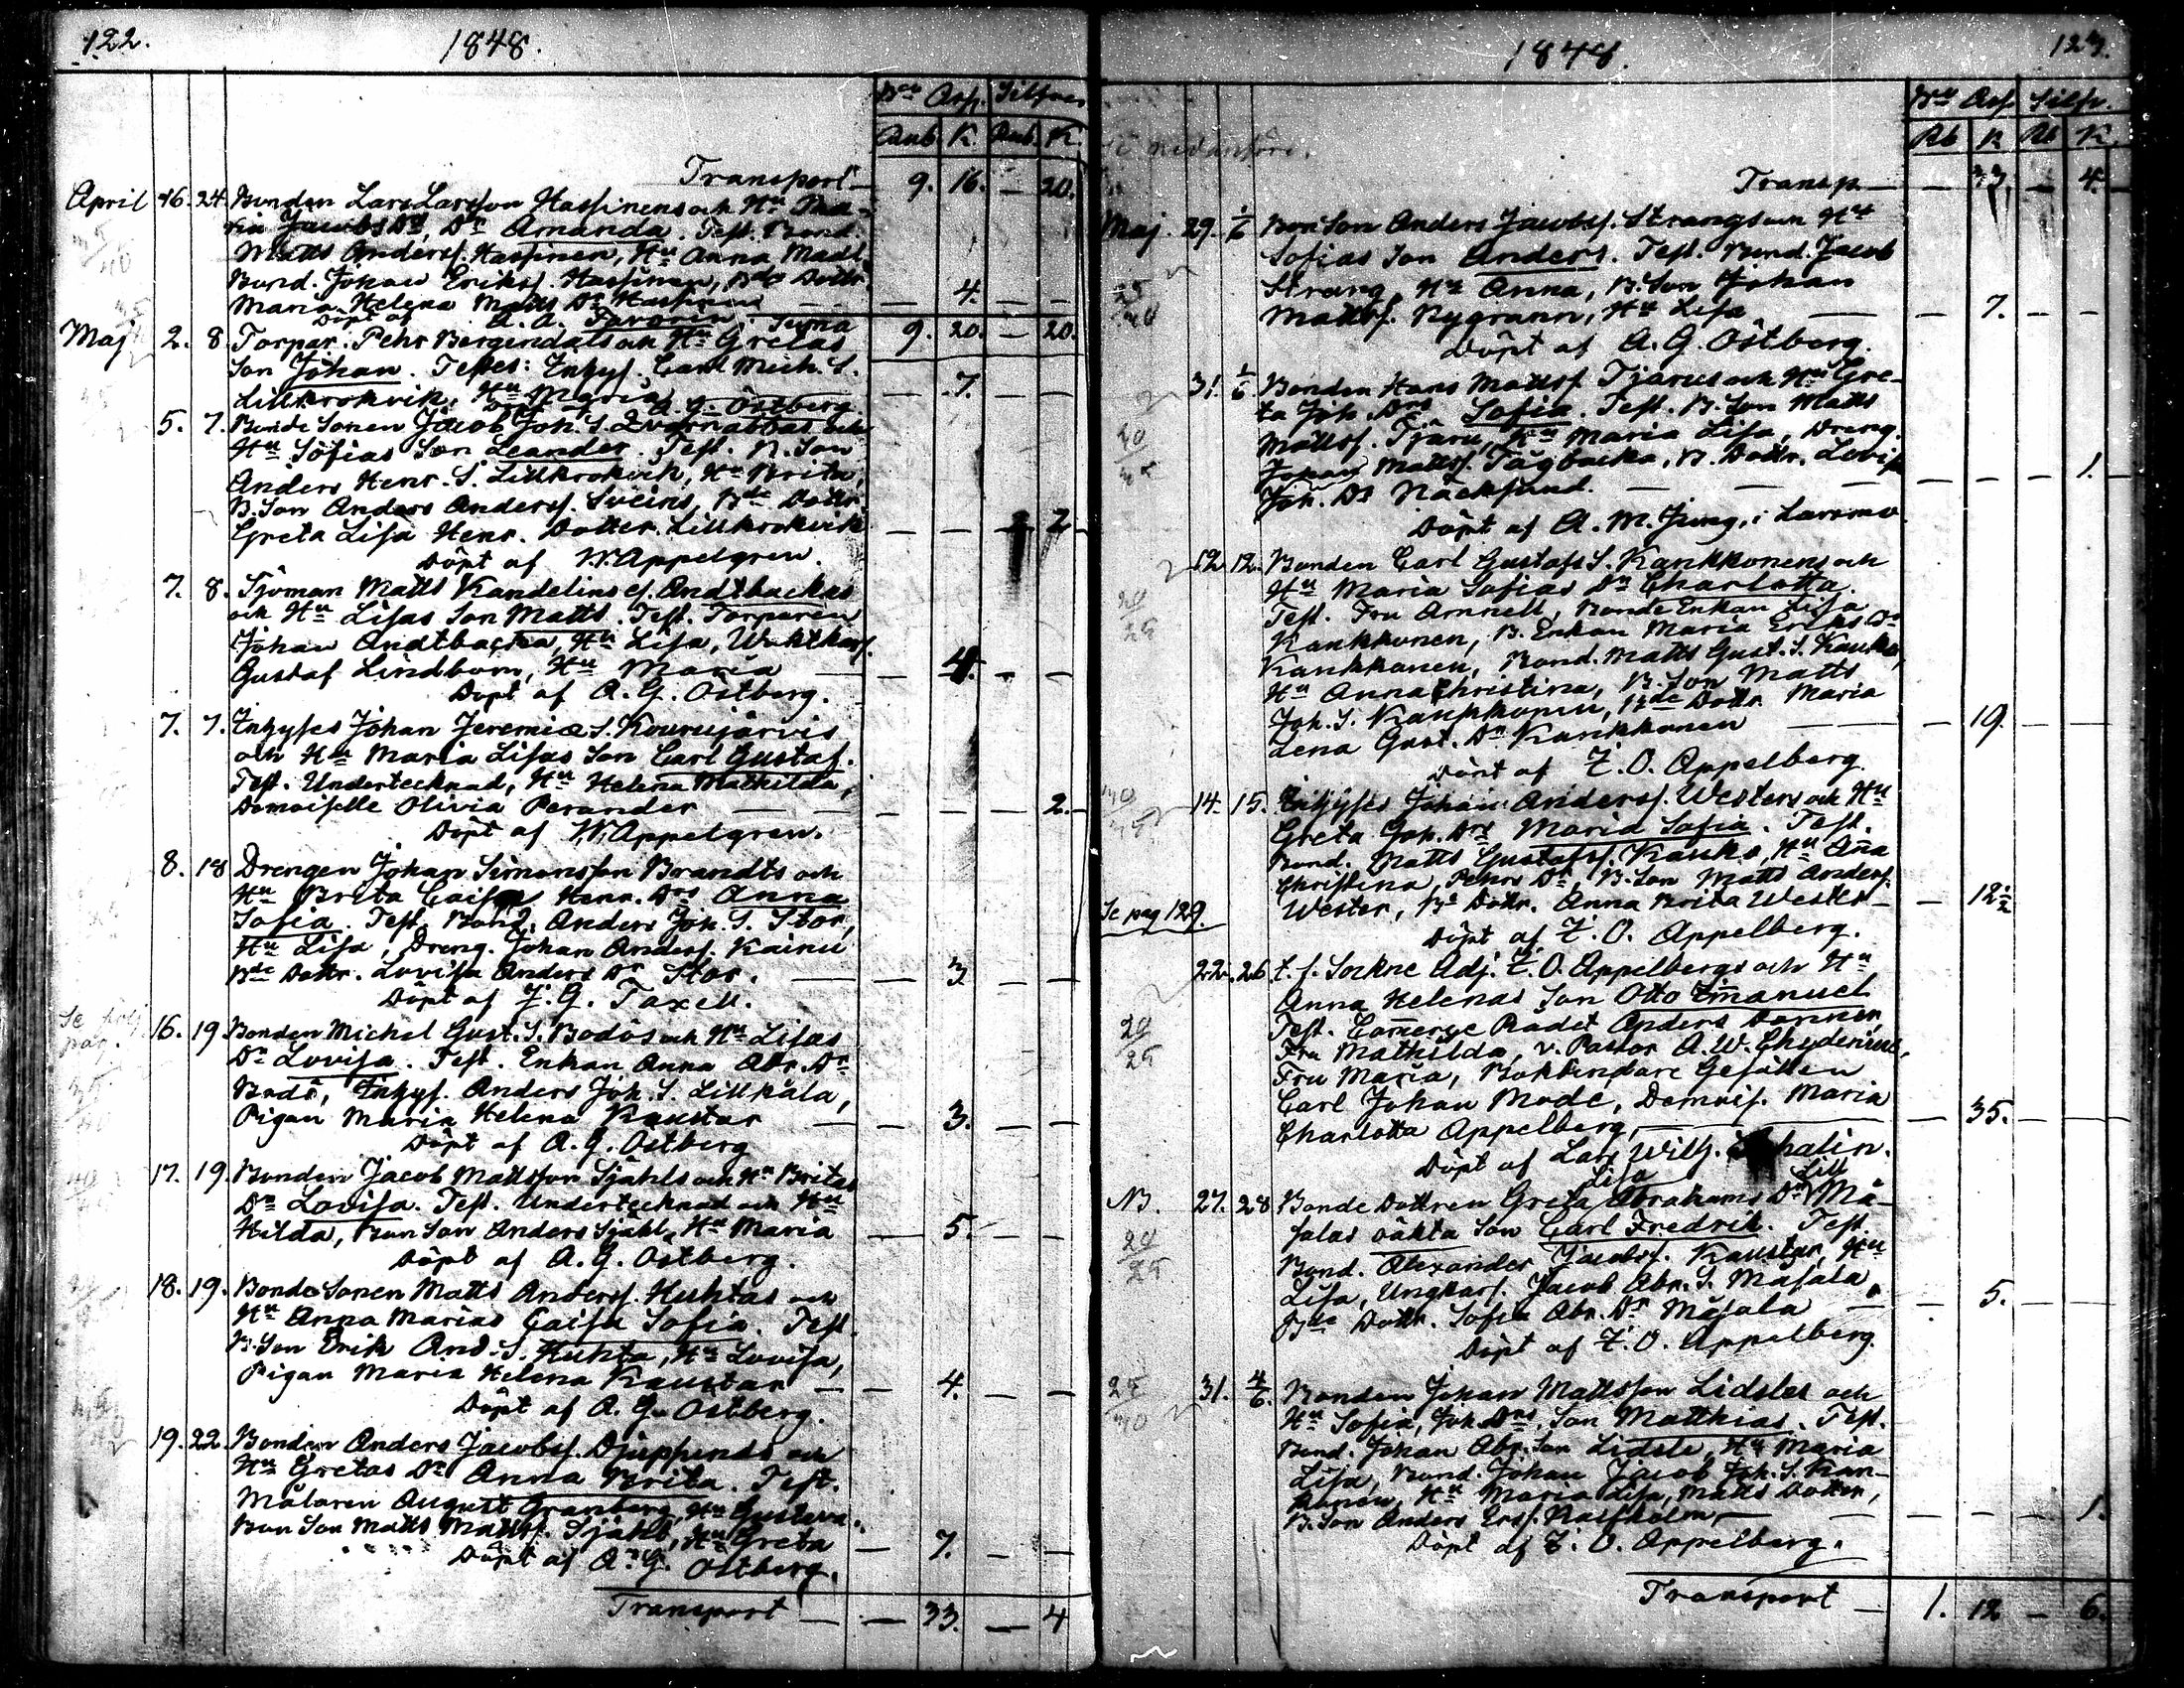 122.
1848.
Bco Ass. Silfver
Rub. K. Rub. K.
Transport — 9. 16. — 20.
April 16. 24. Bonden Lars Larsson Hassinens och Hu Ma-
ria Jacobs Dr, Dr Amanda. Test. Bond.
Matts Anderss. Hassinen, Hu Anna, Matts
Bond. Johan Erikss. Hassinen, Bde Dottr.
Maria Helena Matts Dr Hassinen — — 4. — —
Döpt af A. A. Suma 9. 20. — 20.
Maj 2. 8. Torpar. Pehr Bergendals och Hu Gretas
Son Johan. Testes: Inhys. Carl Mich. S.
Lillkrokvik, Hu Maria — 7. — —
Döpt af A. G. Östberg.
5. 7. Bonde Sonen Jacob Joh. S. Qvarnabbas och
Hu Sofias Son Leander. Test. B. Son
Anders Henr. S. Lillkrokvik, Hu Brita,
B. Son Anders Anderss. Sveins, Bde Dottr.
Greta Lisa Henr. Dotter Lillkrokvik — — — 2
Döpt af W. Appelgren.
7. 8. Sjöman Matts Kandelins el. Andtbackas
och Hu Lisas Son Matts. Test. Torparen
Johan Andtbacka, Hu Lisa,
Gustaf Lindbom, Hu Maria — — 4. — —
Döpt af A. G. Östberg.
7. 7. Inhyses Johan Jeremiæ S. Kourujärvis
och Hu Maria Lisas Son Carl Gustaf.
Test. Undertecknad, Hu Helena Mathilda,
Demoiselle Olivia Perander — — — — 2.
Döpt af W. Appelgren.
8. 18 Drengen Johan Simonsson Brandts och
Hu Brita Caisa Henr. Drs Anna
Sofia. Test. Bond. Anders Joh. S. Stor,
Hu Lisa, Dreng. Johan Anderss. Kainu
Bde Dottr. Lovisa Anders Dr Stor. — — 3 — —
Döpt af F. G. Taxell.
Se pag.
16. 19 Bonden Michel Gust. S. Bodös och Hu Lisas
Dr Lovisa. Test. Enkan Anna Abr. Dr
Bodö, Inhys. Anders Joh. S. Lillkåla,
Pigan Maria Helena Kaustar — — 3. — —
Döpt af A. G. Östberg
17. 19. Bonden Jacob Mattsson Sjöhls och Hu Britas
Dr Lovisa. Test. Undertecknad och Hu
Hilda, Bon Son Anders Sjöhl, Hu Maria — 5. — —
Döpt af A. G. Östberg.
18. 19. Bonde Sonen Matts Anderss. Huhtas och
Hu Anna Marias Caisa Sofia. Test.
B. Son Erik And. S. Huhta, Hu Lovisa,
Pigan Maria Helena Kaustar — — 4. — —
Döpt af A. G. Östberg.
19. 22. Bonden Anders Jacobss. Djupsunds och
Hu Gretas Dr Anna Brita. Test.
Målaren August Granberg, Hu Gustava.
Bon Son Matts Mattss. Sjöhl, Hu Greta — 7. — —
Döpt af A. G. Östberg.
Transport — — 33. — 4
1848.
123.
Bco Ass. Silfv.
Rb K Rb K.
nedanföre.
Transp — — 33. — 4.
Maj. 29. 1/6 Bon Son Anders Jacobss. Strangs och Hu
Sofias Son Anders. Test. Bond. Jacob
Strang, Hu Anna, B. Son Johan
Mattss. Nygrann, Hu Lisa — — 7. — —
Döpt af A. G. Östberg.
31. 1/6 Bonden Hans Mattss. Tjärus och Hu Gre-
ta Joh. Drs Sofia. Test. B. Son Matts
Mattss. Tjäru, Hu Maria Lisa, Dreng.
Johan Mattss. Tågbacka, B. Dottr. Lovisa
Joh. Dr Näcksund. — — — — — — 1.
Döpt af A. M. Jung, i Larsmo
12 12. Bonden Carl Gustafs S. Kankkonens och
Hu Maria Sofias Dr Charlotta.
Test. Fru Arnnell, Bonde Enkan Lisa
Kankkonen, B. Enkan Maria Eriks Dr
Kankkonen, Bond. Matts Gust. S. Kauko,
Hu Anna Christina, B. Son Matts
Joh. S. Kankkonen, Bde Dottr. Maria
Lena Gust. Dr Kankkonen — — 19. — —
Döpt af F. O. Appelberg.
14. 15. Inhyses Johan Anderss. Westers och Hu
Greta Joh. Drs Maria Sofia. Test.
Bond. Matts Gustafss. Kauko, Hu Aña
Christina, Pehrs Dr, B. Son Matts Anderss.
Se pag 129.
Wester, Be Dottr. Anna Brita Wester — — 12 1/2
Döpt af F. O. Appelberg.
22. 26 t. f. Sockne Adj. F. O. Appelbergs och Hu
Anna Helenas Son Otto Emanuel
Test. Comerge Rådet Anders Donner,
Fru Mathilda, v. Pastor A. W. Chydenius,
Fru Maria, Bokbindare Gesällen
Carl Johan Mode, Demois. Maria
Charlotta Appelberg, — — 35. — —
Döpt af Lars Wilh.
NB. 27. 28 Bonde Dottren Greta Lisa Abrahams Dr Lill Må-
salas oäkta Son Carl Fredrik. Test.
Bond. Alexander Jacobss. Kaustar, Hu
Lisa, Ungkarl. Jacob Abr. S. Måsala,
Bde Dottr. Sofia Abr. Dr Måsala — — 5. — —
Döpt af F. O. Appelberg.
31. 4/6. Bonden Johan Mattsson Lidstes och
Hu Sofia, Joh. Drs, Son Matthias. Test.
Bond. Johan Abr. Son Lidste, Hu Maria
Lisa, Bond. Johan Jacob Joh. S. Kan-
konen, Hu Maria Lisa, Matts Dotter,
B. Son Anders Erss. — — — — 1.
Döpt af F. O. Appelberg.
Transport — 1. 12 — 6.